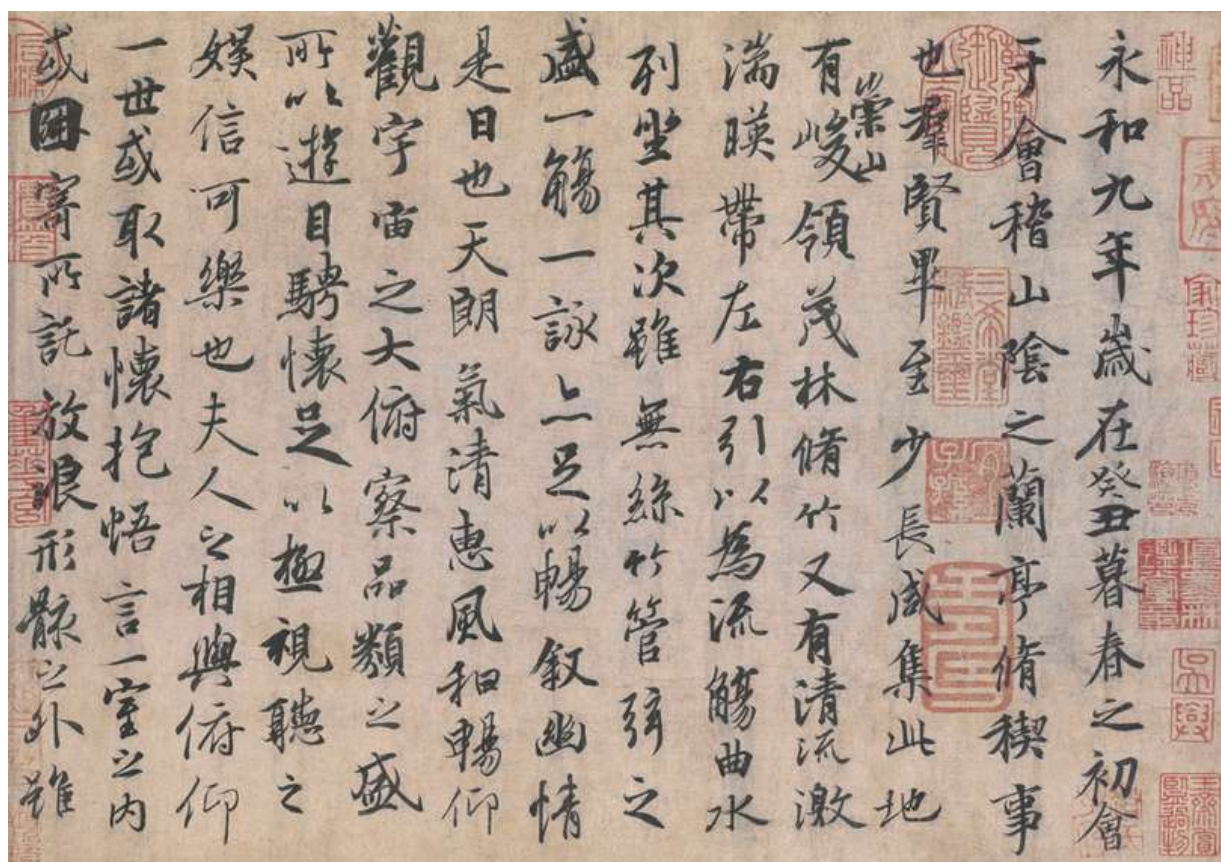 永和九年歲在癸丑暮春之初會
于會稽山陰之蘭亭脩稧事
也羣賢畢至少長咸集此地
有崇山峻領茂林脩竹又有清流激
湍暎帶左右引以為流觴曲水
列坐其次雖無絲竹管弦之
盛一觴一詠亦足以暢敘幽情
是日也天朗氣清惠風和暢仰
觀宇宙之大俯察品類之盛
所以遊目騁懷足以極視聽之
娛信可樂也夫人之相與俯仰
一世或取諸懷抱悟言一室之內
或因寄所託放浪形骸之外雖